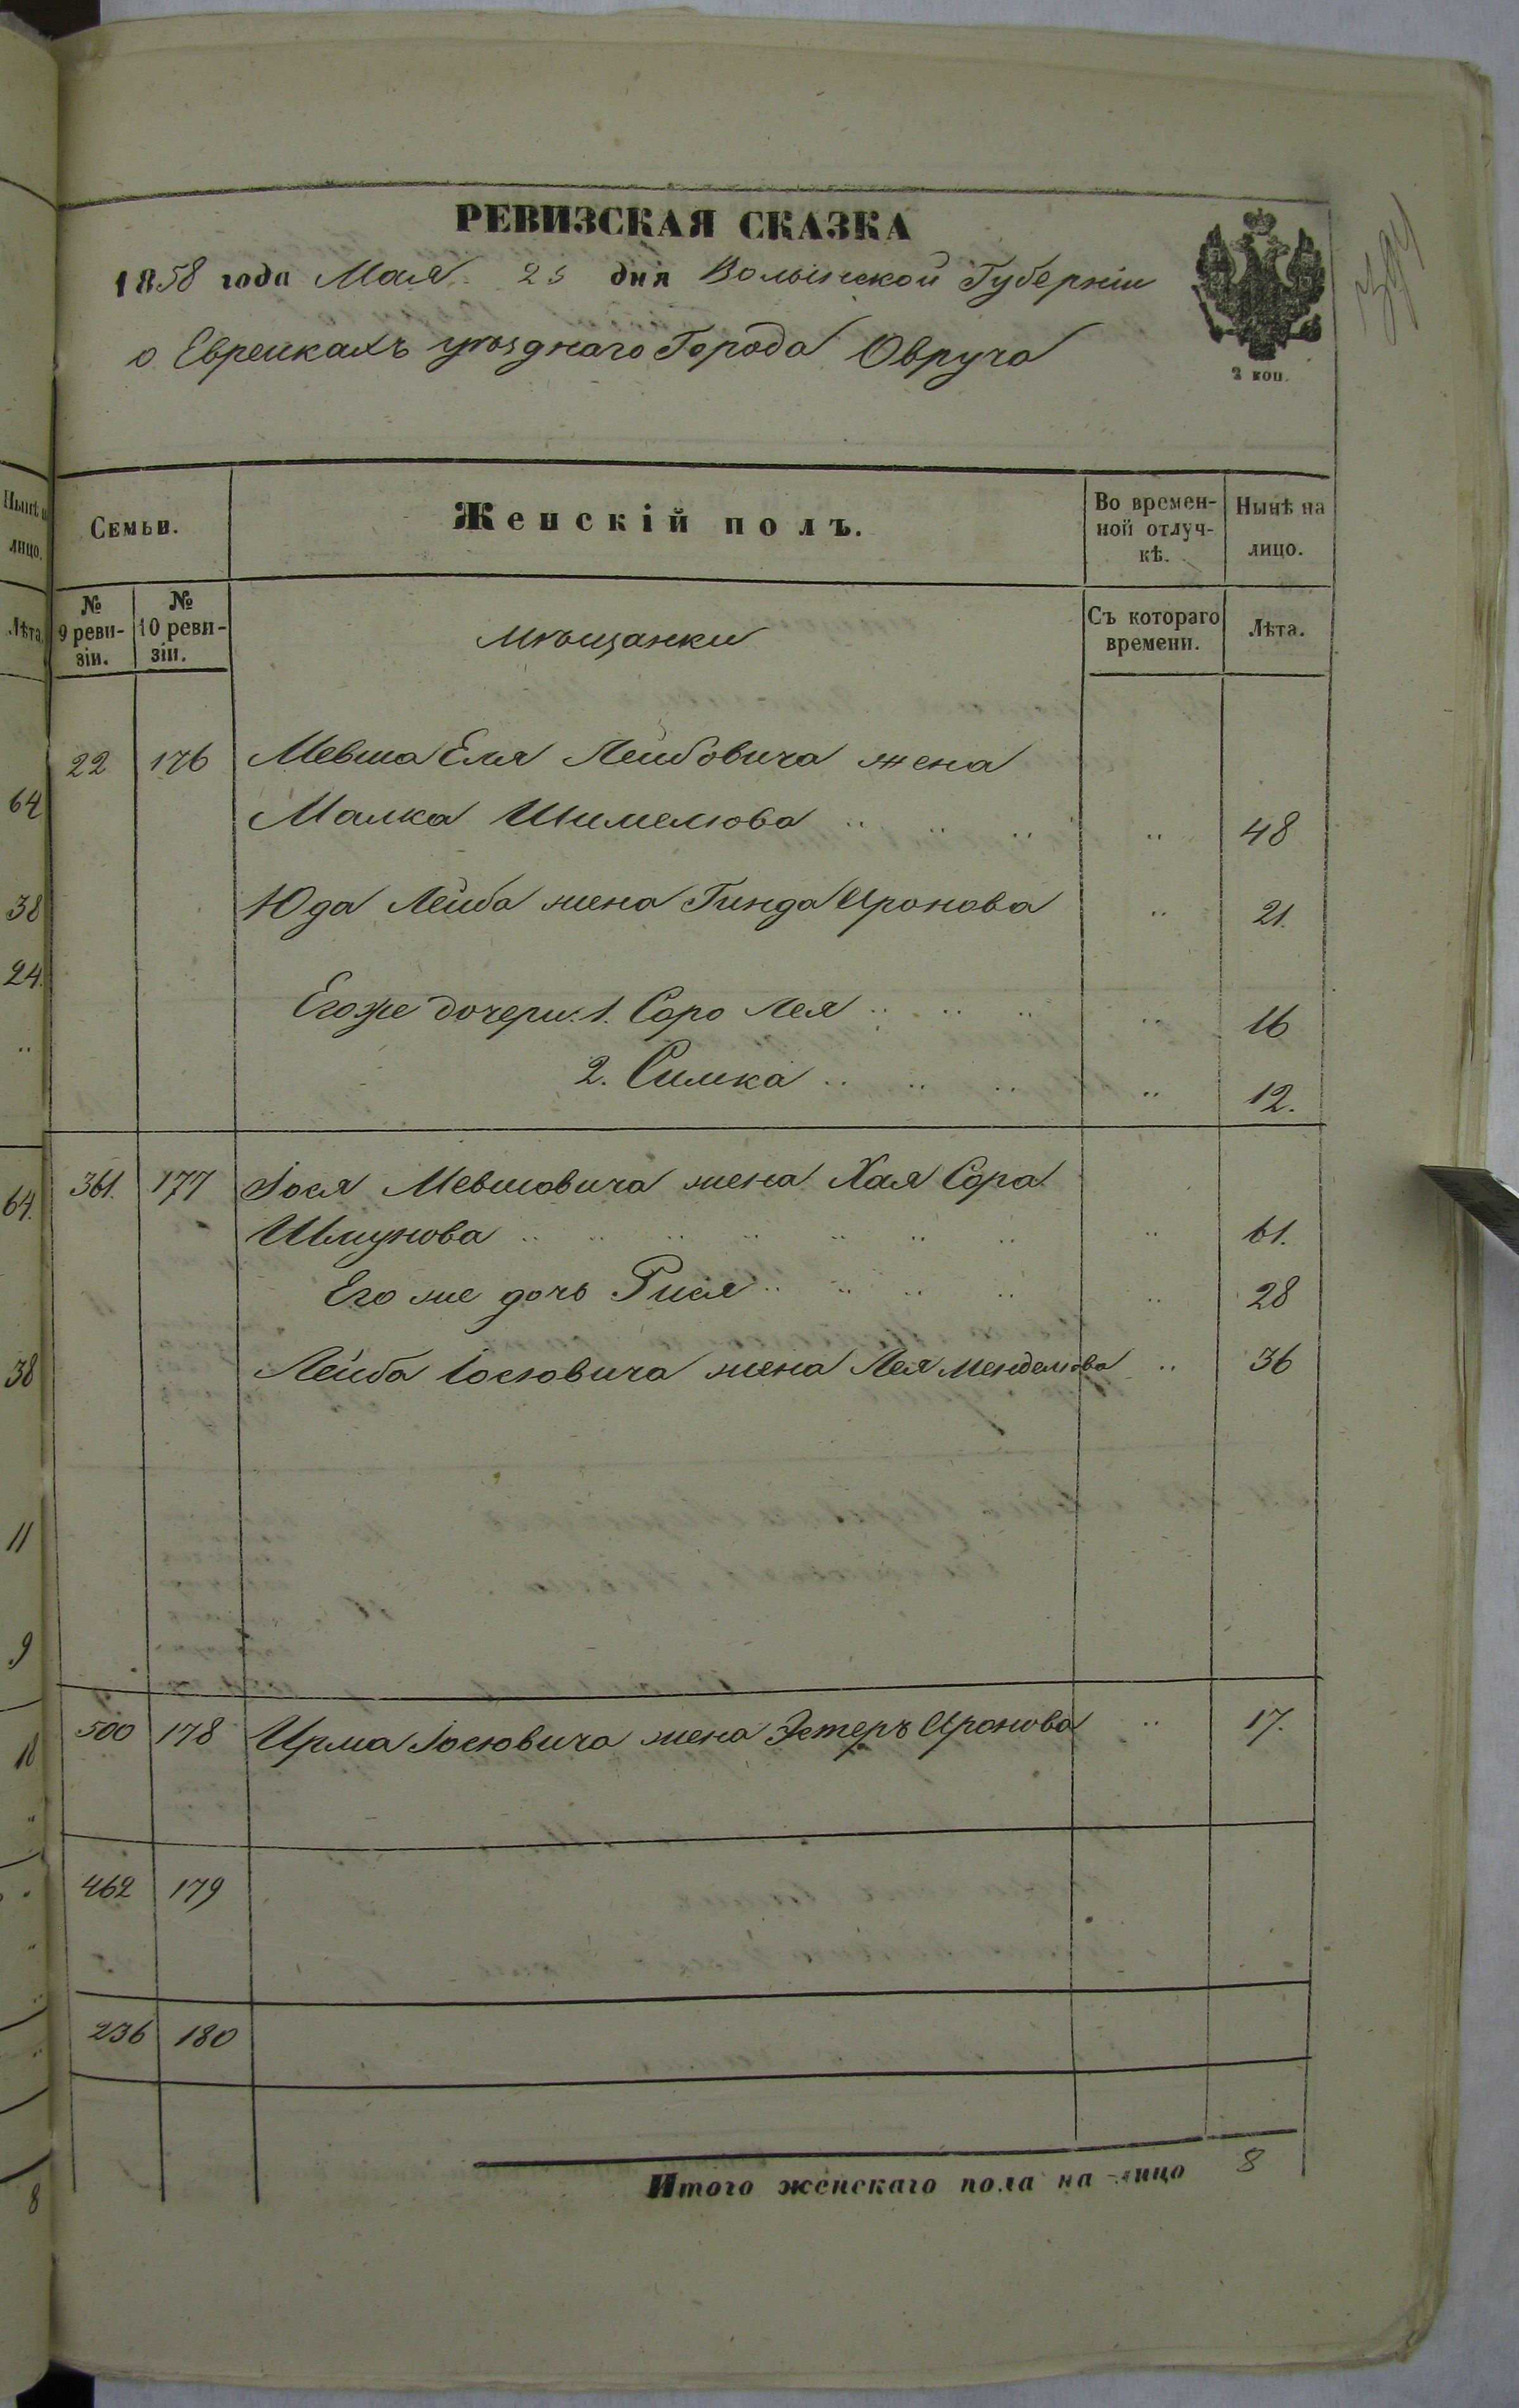 РЕВИЗСКАЯ СКАЗКА
1858 года Мая 25 дня Волынской Губерніи
о Еврейкахъ уѣзднаго Города Овруча
2 коп.
Семьи.
Женскій полъ.
Во времен-
ной отлуч-
кѣ.
Нынѣ на
лицо.
№
9 реви-
зіи.
№
10 реви-
зіи.
Мѣщанки
Съ котораго
времени.
Лѣта.
22 176 Мевша Еля Лейбовича жена
Малка Шимелюва 48
Юда Лейба жена Гинда Иронова 21.
Егоже дочери: 1. Соро Лея 16
2. Симка 12.
361. 177 Іося Мевшовича жена Хая Сора
Шмунова 61.
Его же дочь Рися 28
Лейба Іосювича жена Лея Менделюва 36
500 178 Ирма Іосювича жена Эстеръ Иронова 17.
462 179
236 180
Итого женскаго пола на лицо 8
Нынѣ
лицо.
Лѣта
64
38
24.
64.
38
11
9
18
8